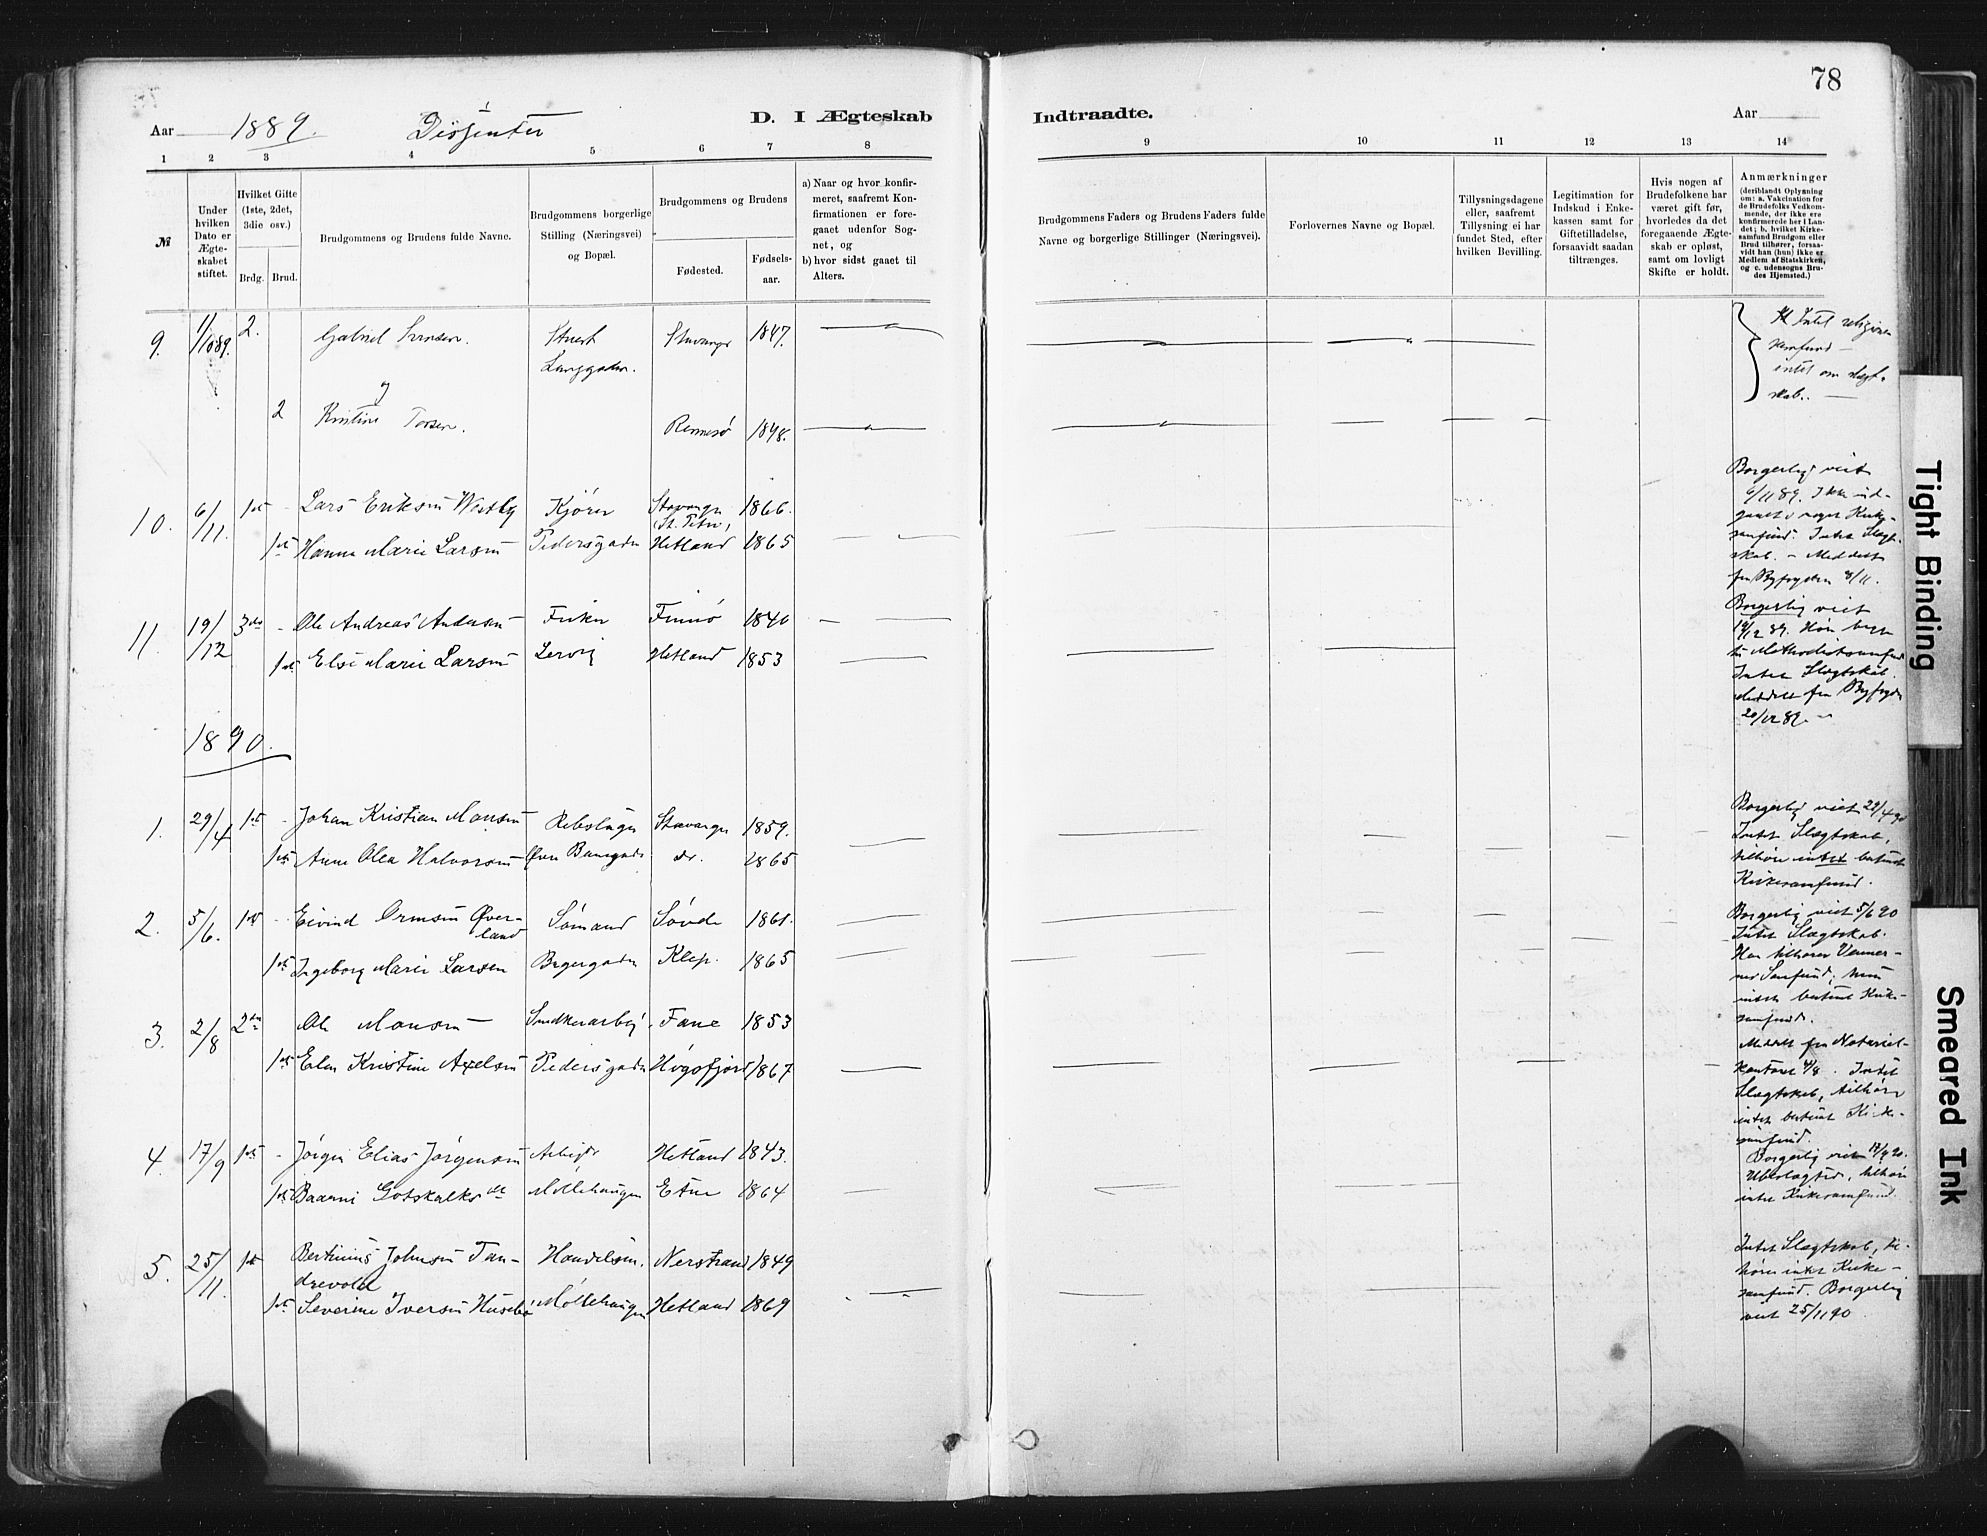 78
Aar 1889. Dissenter D. I Ægteskab Indtraadte. Aar
1 2 3 4 5 6 7 8 9 10 11 12 13 14
№
Under hvilken Dato er Ægteskabet stiftet.
Hvilket Gifte (1ste, 2det, 3die osv.)
Brdg. Brud.
Brudgommens og Brudens fulde Navne.
Brudgommens borgerlige Stilling (Næringsvei) og Bopæl.
Brudgommens og Brudens
Fødested. Fødselsaar.
a) Naar og hvor konfirmeret, saafremt Konfirmationen er foregaaet udenfor Sognet, og
b) hvor sidst gaaet til Alters.
Brudgommens Faders og Brudens Faders fulde Navne og borgerlige Stillinger (Næringsvei).
Forlovernes Navne og Bopæl.
Tillysningsdagene eller, saafremt Tillysning ei har fundet Sted, efter hvilken Bevilling.
Legitimation for Indskud i Enkekassen samt for Giftetilladelse, forsaavidt saadan tiltrænges.
Hvis nogen af Brudefolkene har været gift før, hvorledes da det foregaaende Ægteskab er opløst, samt om lovligt Skifte er holdt.
Anmærkninger
(deriblandt Oplysning om: a. Vakcination for de Brudefolks Vedkommende, der ikke ere konfirmerede her i Landet; b, hvilket Kirkesamfund Brudgom eller Brud tilhører, forsaavidt han (hun) ikke er Medlem af Statskirken, og c. udensogns Brudes Hjemsted.)
9. 1/1089. 2. Gabriel Svensen. Stuert Stavanger 1847.
Langgaden.
Intet religiøse samfund —
intet om slægtskab. —
og
2 Kristine Torsen. Rennesø 1848.
10. 6/11. 1ste - Lars Eriksen Westby Kjører Stavanger (St. Petri) 1866.
1ste Hanne Marie Larsen Pedersgaden Hetland 1865
Borgerlig viet
6/11 89. Ikke indgaaet i noget Kirkesamfund. Intet Slægtskab. - Meddelt
fra Byfogden 8/11.
11. 19/12 3die - Ole Andreas Andersen Fisker Finnø 1840
1ste Else Marie Larsen Lervig Hetland 1853
Borgerlig viet
19/12 89.
til Methodistsamfund
Intet Slægtskab.
Meddelt fra Byfogden
20/12 89. —
1890.
1. 29/4 1ste - Johan Kristian Monsen Rebslager Stavanger 1859.
1ste Anne Olea Halvorsen Øvre Banegade do. 1865
Borgerlig viet 29/4 90
Intet Slægtskab,
tilhører intet bestemt
Kirkesamfund.
2. 5/6. 1ste - Eivind Ormsen Øverland Sømand Søvde 1861.
1ste Ingeborg Marie Larsen Bergegaden Klep. 1865
Borgerlig viet 5/6 90
Intet Slægtskab.
Han tilhører Vennernes Samfund; hun
intet bestemt Kirkesamfund.
3. 2/8 2den Ole Monsen Snedkerarbeid. Fane 1853
1ste Elen Kristine Axelsen Pedersgaden Høgsfjord 1867
Meddelt fra Notarielkontoret 4/8. Intet
Slægtskab, tilhører
intet bestemt Kirkesamfund.
4. 17/9 1ste - Jørgen Elias Jørgensen Arbeider Hetland 1843.
1ste Baarni Gotskalksdt Møllehaugen Etne 1864
Borgerlig viet 17/9 90.
Ubeslægted, tilhører
intet Kirkesamfund.
5. 25/11. 1ste Bertinius Johnsen Tandrevold Handelsm. Nerstrand 1849
1ste Severine Iversen Husebø Møllehaugen Hetland 1869
Intet Slægtskab, tilhører intet Kirkesamfund. Borgerlig
viet 25/11 90
Tight Binding
Smeared Ink